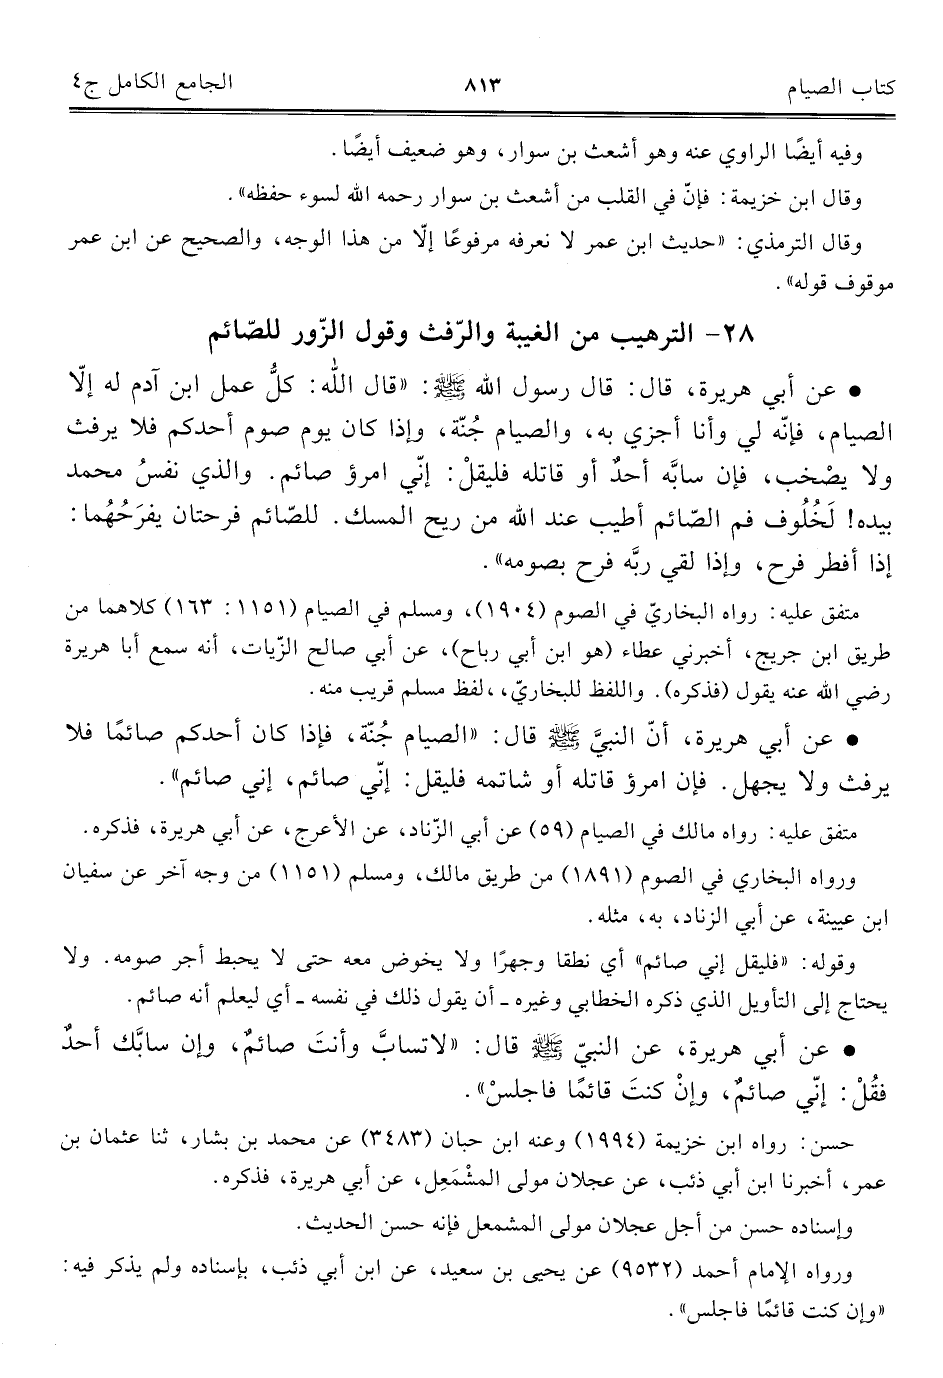 كتاب الصيام ٨١٣ الجامع الكامل ج٤
وفيه أيضًا الراوي عنه وهو أشعث بن سوار، وهو ضعيف أيضًا.
وقال ابن خزيمة: فإنّ في القلب من أشعث بن سوار رحمه الله لسوء حفظه».
وقال الترمذي: «حديث ابن عمر لا نعرفه مرفوعًا إلّا من هذا الوجه، والصحيح عن ابن عمر
موقوف قوله».
٢٨- الترهيب من الغيبة والرّفث وقول الزّور للصّائم
• عن أبي هريرة، قال: قال رسول الله ﷺ: «قال اللَّه: كلُّ عمل ابن آدم له إلّا
الصيام، فإنّه لي وأنا أجزي به، والصيام جُنّة، وإذا كان يوم صوم أحدكم فلا يرفث
ولا يصْخب، فإن سابَّه أحدٌ أو قاتله فليقلْ: إنّي امرؤ صائم. والذي نفسُ محمد
بيده! لَخُلُوف فم الصّائم أطيب عند الله من ريح المسك. للصّائم فرحتان يفرَحُهُما:
إذا أفطر فرح، وإذا لقي ربَّه فرح بصومه».
متفق عليه: رواه البخاريّ في الصوم (١٩٠٤)، ومسلم في الصيام (١١٥١: ١٦٣) كلاهما من
طريق ابن جريج، أخبرني عطاء (هو ابن أبي رباح)، عن أبي صالح الزّيات، أنه سمع أبا هريرة
رضي الله عنه يقول (فذكره). واللفظ للبخاريّ، ،لفظ مسلم قريب منه.
• عن أبي هريرة، أنّ النبيَّ ﷺ قال: «الصيام جُنّة، فإذا كان أحدكم صائمًا فلا
يرفث ولا يجهل. فإن امرؤ قاتله أو شاتمه فليقل: إنّي صائم، إني صائم».
متفق عليه: رواه مالك في الصيام (٥٩) عن أبي الزّناد، عن الأعرج، عن أبي هريرة، فذكره.
ورواه البخاري في الصوم (١٨٩١) من طريق مالك، ومسلم (١١٥١) من وجه آخر عن سفيان
ابن عيينة، عن أبي الزناد، به، مثله.
وقوله: «فليقل إني صائم» أي نطقا وجهرًا ولا يخوض معه حتى لا يحبط أجر صومه. ولا
يحتاج إلى التأويل الذي ذكره الخطابي وغيره ـ أن يقول ذلك في نفسه ـ أي ليعلم أنه صائم.
• عن أبي هريرة، عن النبيّ ﷺ قال: «لاتسابَّ وأنتَ صائمٌ، وإن سابَّك أحدٌ
فقُلْ: إنّي صائمٌ، وإنْ كنتَ قائمًا فاجلسْ».
حسن: رواه ابن خزيمة (١٩٩٤) وعنه ابن حبان (٣٤٨٣) عن محمد بن بشار، ثنا عثمان بن
عمر، أخبرنا ابن أبي ذئب، عن عجلان مولى المشْمَعِل، عن أبي هريرة، فذكره.
وإسناده حسن من أجل عجلان مولى المشمعل فإنه حسن الحديث.
ورواه الإمام أحمد (٩٥٣٢) عن يحيى بن سعيد، عن ابن أبي ذئب، بإسناده ولم يذكر فيه:
«وإن كنت قائمًا فاجلس».